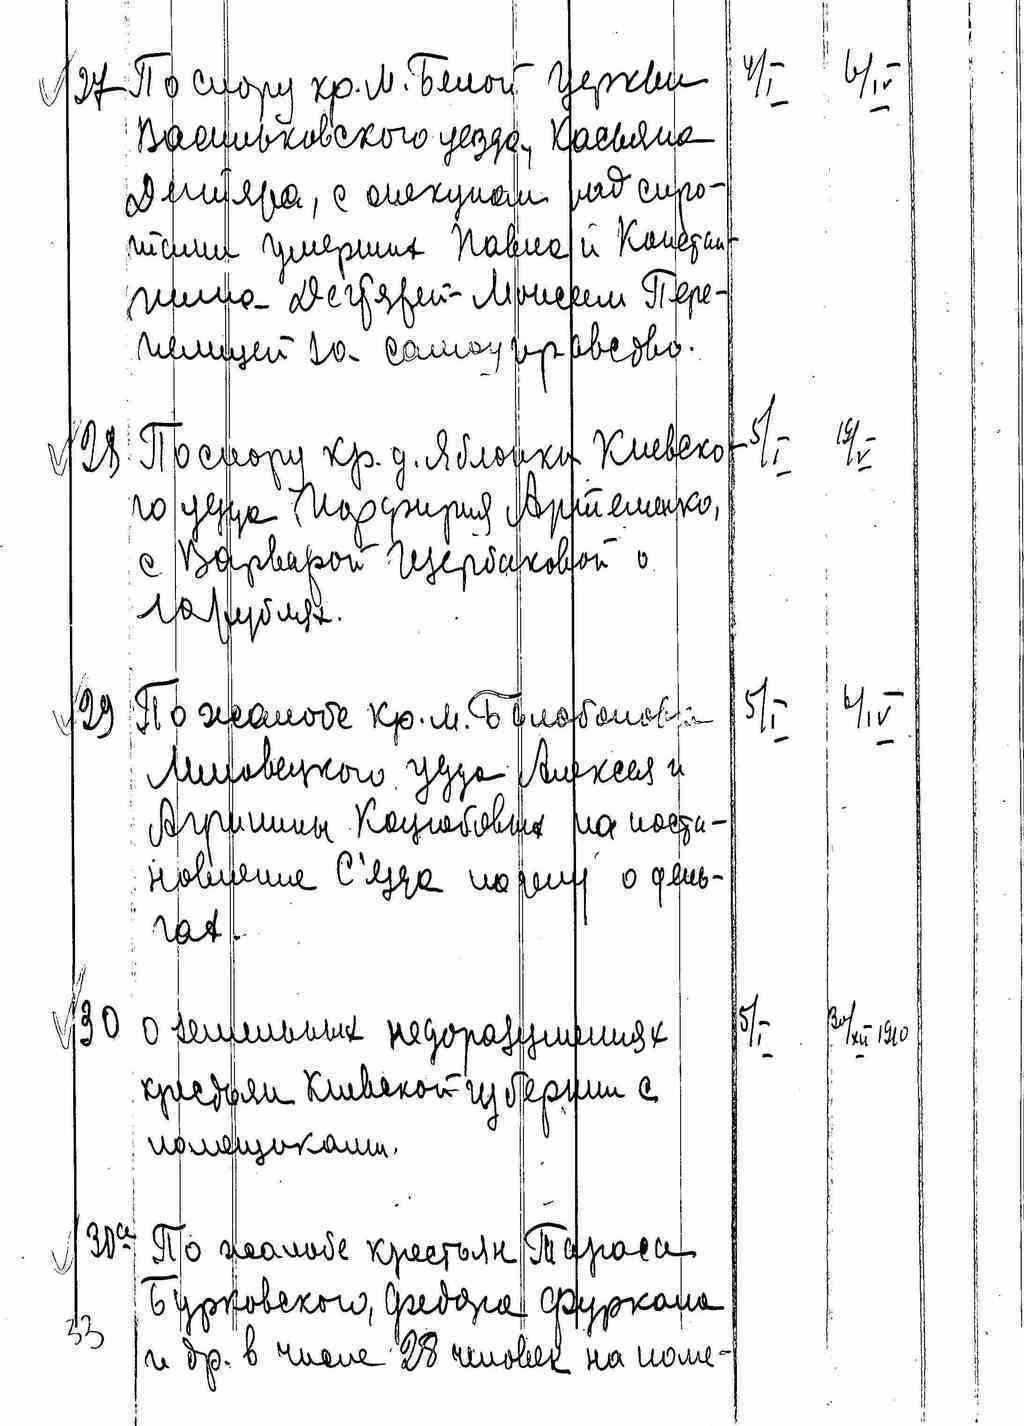 27 По спору кр. м. Белой Церкви 4/I 6/IV
Васильковского уезда, Касьяна
Дегтяра, с опекуном над сиро-
тами умерших Павла и Констан-
тина Дегтярей - Моисеем Пере-
пелицей за самоуправство.
28 По спору кр. д. Яблонки Киевско- 5/I 19/V
го уезда Порфирия Артеменко,
с Варварой Щербаковой о
рублях.
29 По жалобе кр. м. Балабановки 5/I 6/IV
Липовецкого уезда Алексея и
Агрипины Коцюбовых на поста-
новление С'езда по делу о день-
гах.
30 О земельных недоразумениях 5/I 30/XII 1910
крестьян Киевской губернии с
помещиками.
30а По жалобе крестьян Тараса
Бурковского, Федора Фуркала
и др. в числе 28 человек на поме-
33